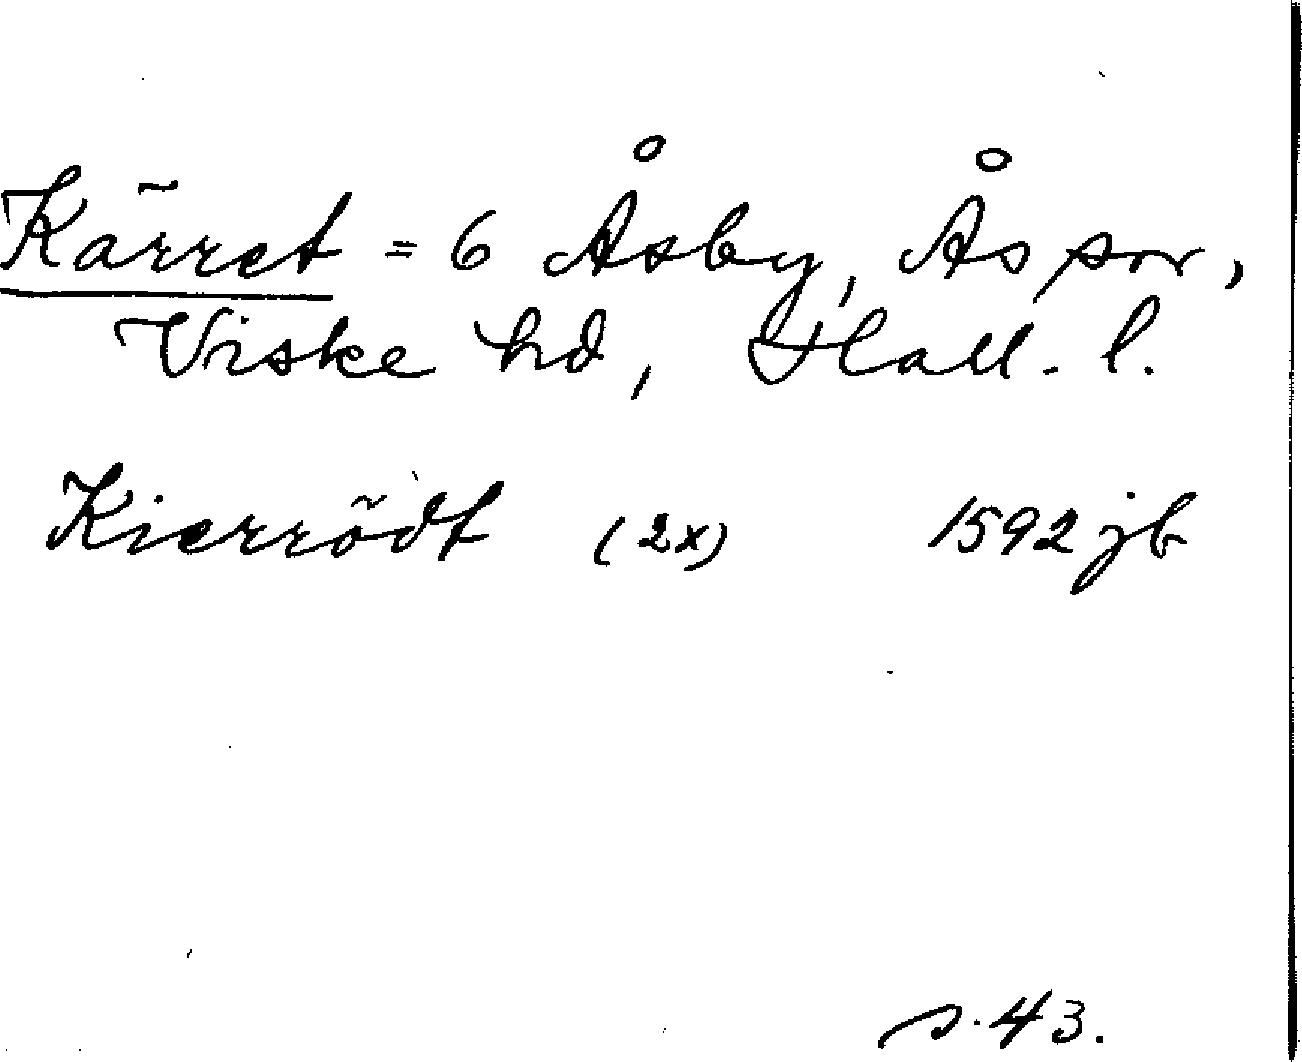 Kärret = 6 Åsby, Ås sn,
Viske hd, Hall. l.
Kierrödt (2x) 1592 jb
s. 43.